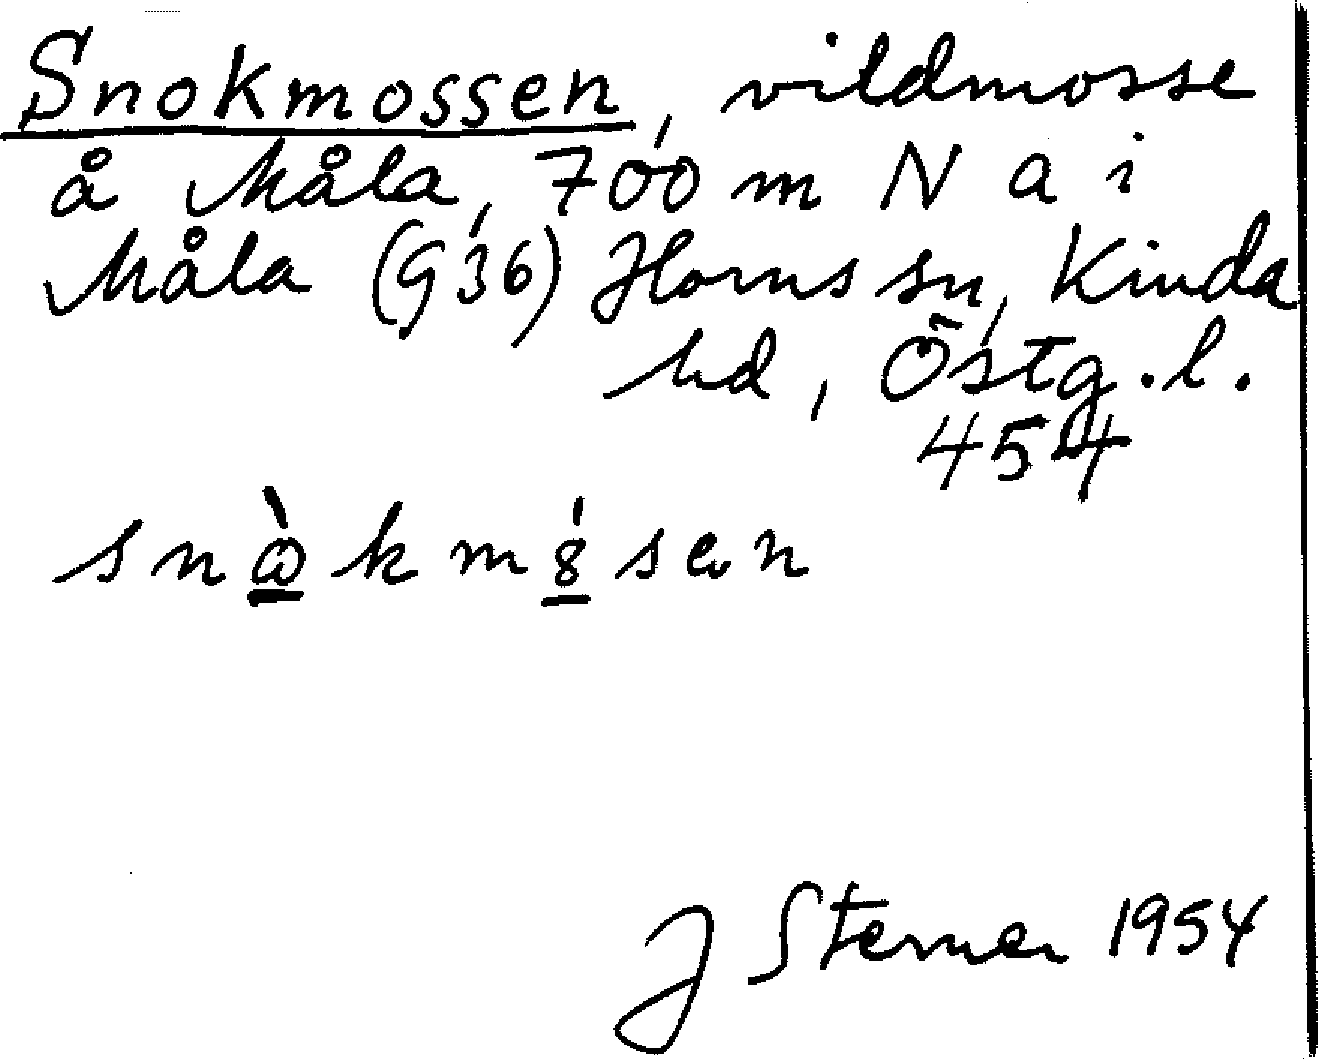 Snokmossen, vildmosse
å Måla, 700 m N a i
Måla (936) Horns sn, Kinda
hd, Östg.l.
454
snὼkm8́sen
J Sterner 1954